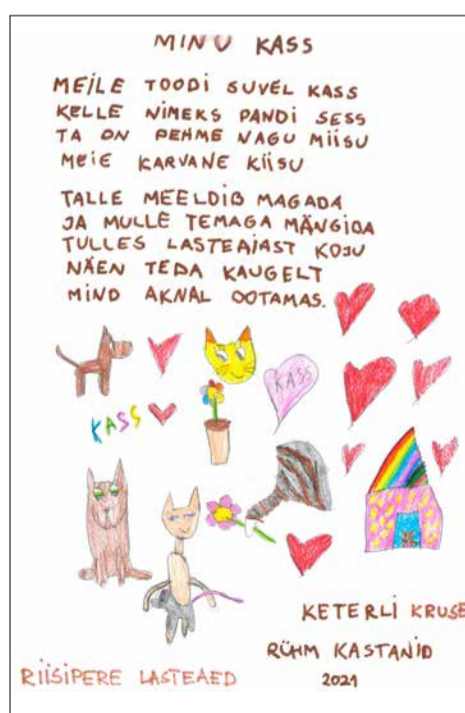 MINU KASS
MEILE TOODI SUVEL KASS
KELLE NIMEKS PANDI SESS
TA ON PEHME NAGU MIISU
MEIE KARVANE KIISU
TALLE MEELDIB MAGADA
JA MULLE TEMAGA MÄNGIDA
TULLES LASTEAIAST KOJU
NÄEN TEDA KAUGELT
MIND AKNAL OOTAMAS.
KASS
KASS
KETERLI KRUSE
RÜHM KASTANID
RIISIPERE LASTEAED
2021